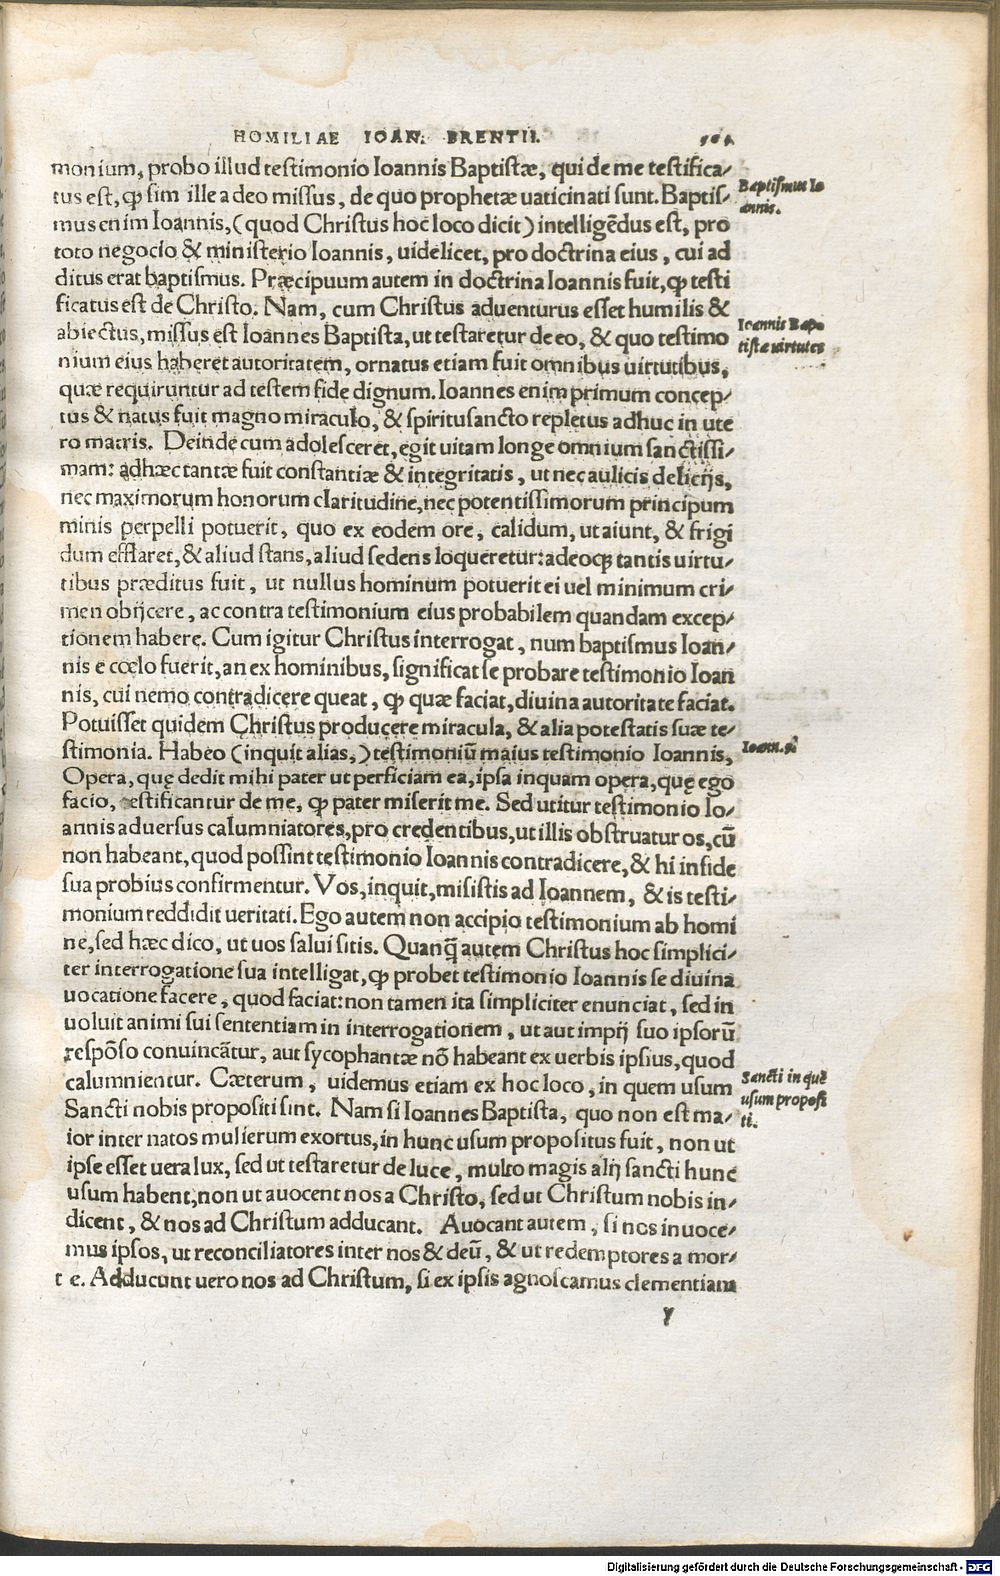 HOMILIAE IOAN. BRENTII.
monium, probo illud testimonio Ioannis Baptistæ, qui de me testifica/
tus est, ꝙ sim ille a deo missus, de quo prophetæ uaticinati sunt. Baptis/
Baptismus Io
annis.
mus enim Ioannis, (quod Christus hoc loco dicit) intelligẽdus est, pro
toto negocio & ministerio Ioannis, uidelicet, pro doctrina eius, cui ad
ditus erat baptismus. Præcipuum autem in doctrina Ioannis fuit, ꝙ testi
ficatus est de Christo. Nam, cum Christus aduenturus esset humilis &
Ioannis Bapt
tistæ uirtutes
abiectus, missus est Ioannes Baptista, ut testaretur de eo, & quo testimo
nium eius haberet autoritatem, ornatus etiam fuit omnibus uirtutibus,
quæ requiruntur ad testem fide dignum. Ioannes enim primum concep/
tus & natus fuit magno miraculo, & spiritusancto repletus adhuc in ute
ro matris. Deinde cum adolesceret, egit uitam longe omnium sanctissi/
mam: adhæc tantæ fuit constantiæ & integritatis, ut nec aulicis delicijs,
nec maximorum honorum claritudine, nec potentissimorum principum
minis perpelli potuerit, quo ex eodem ore, calidum, ut aiunt, & frigi
dum efflaret, & aliud stans, aliud sedens loqueretur: adeoq; tantis uirtu/
tibus præditus fuit, ut nullus hominum potuerit ei uel minimum cri/
men obijcere, ac contra testimonium eius probabilem quandam excep/
tionem habere. Cum igitur Christus interrogat, num baptismus Ioan/
nis e cœlo fuerit, an ex hominibus, significat se probare testimonio Ioan
nis, cui nemo contradicere queat, ꝙ quæ faciat, diuina autoritate faciat.
Potuisset quidem Christus producere miracula, & alia potestatis suæ te/
stimonia. Habeo (inquit alias,) testimoniũ maius testimonio Ioannis,
Opera, quę dedit mihi pater ut perficiam ea, ipsa inquam opera, quę ego
facio, testificantur de me, ꝙ pater miserit me. Sed utitur testimonio Io/
annis aduersus calumniatores, pro credentibus, ut illis obstruatur os, cũ
non habeant, quod possint testimonio Ioannis contradicere, & hi in fide
sua probius confirmentur. Vos, inquit, misistis ad Ioannem, & is testi/
monium reddidit ueritati. Ego autem non accipio testimonium ab homi
ne, sed hæc dico, ut uos salui sitis. Quanq̃ autem Christus hoc simplici/
ter interrogatione sua intelligat, ꝙ probet testimonio Ioannis se diuina
uocatione facere, quod faciat: non tamen ita simpliciter enunciat, sed in
uoluit animi sui sententiam in interrogationem, ut aut impij suo ipsorũ
respõso conuincãtur, aut sycophantæ nõ habeant ex uerbis ipsius, quod
calumnientur. Cæterum, uidemus etiam ex hoc loco, in quem usum
Sancti in quẽ
usum proposi
ti.
Sancti nobis propositi sint. Nam si Ioannes Baptista, quo non est ma/
ior inter natos mulierum exortus, in hunc usum propositus fuit, non ut
ipse esset uera lux, sed ut testaretur de luce, multo magis alij sancti hunc
usum habent, non ut auocent nos a Christo, sed ut Christum nobis in/
dicent, & nos ad Christum adducant. Auocant autem, si nos inuoce/
mus ipsos, ut reconciliatores inter nos & deũ, & ut redemptores a mor/
te. Adducunt uero nos ad Christum, si ex ipsis agnoscamus clementiam
y
Digitalisierung gefördert durch die Deutsche Forschungsgemeinschaft - DFG